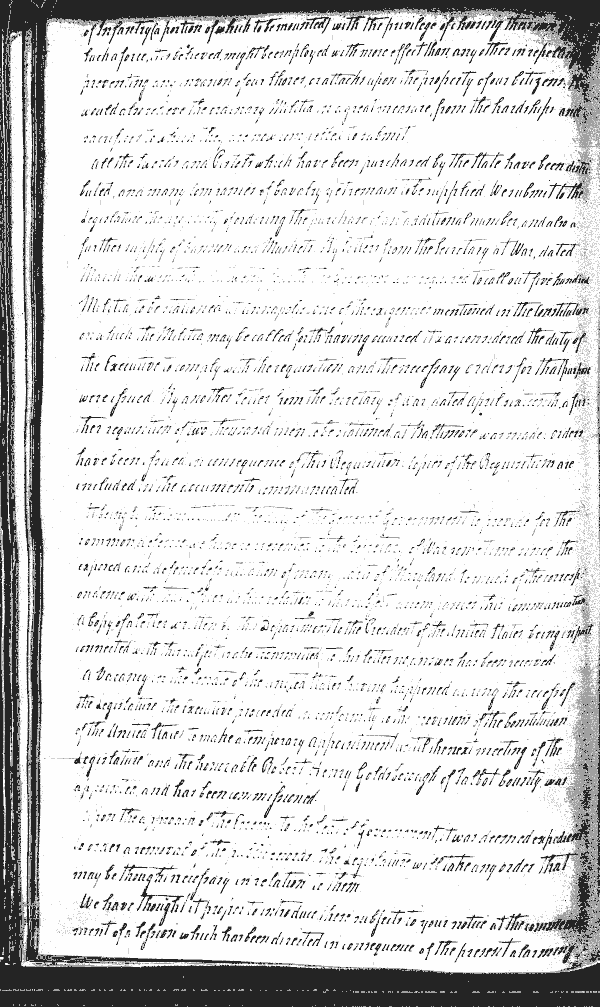 of Infantry (a portion of which to be mounted) with the privilege of choosing their own
Such a force, it is believed, might be employed with more effect than any other in repelling
preventing any invasion of our shores, or attacks upon the property of our Citizens, it
would also relieve the ordinary Militia in a great measure, from the hardships and
sacrifices to which they are now compelled to submit
All the Swords and Pistols which have been purchased by the State have been distri
buted, and many companies of Cavalry yet remain to be supplied We submit to the
Legislature the necessity of ordering the purchase of an additional number, and also a
further supply of Cannon and Muskets. By letter from the Secretary at War, dated
March the the Governor was required to call out five hundred
Militia to be stationed at Annapolis. one of the exigencies mentioned in the Constitution
on which the Militia may be called forth having occurred it was considered the duty of
the Executive to comply with the requisition and the necessary orders for that purpose
were issued. By another letter from the Secretary of War dated April sixteenth, a fur
ther requisition of two thousand men, to be stationed at Baltimore was made. orders
have been issued in consequence of this Requisition. Copies of the Requisition are
included in the documents communicated
the duty of the General Government to provide for the
common defence, we have represented to the Secretary of War some time since the
exposed and defenceless situation of many parts of Maryland. So much of the corresp
ondence with that officer as has relation to that subject accompanies this communication
A Copy of a letter written by this Department to the President of the United States being in part
connected with this subject is also transmitted. to this letter no answer has been received.
A Vacancy in the Senate of the United States having happened during the recess of
the Legislature the Executive proceeded in conformity to the provisions of the Constitution
of the United States to make a temporary appointment until the next meeting of the
Legislature and the honorable Robert Henry Goldsborough of Talbot County was
appointed, and has been commissioned.
Upon the approach of the Enemy to the Seat of Government, it was deemed expedient
to order a removal of the public records. The Legislature will take any order that
may be thought necessary in relation to them
We have thought it proper to introduce these subjects to your notice at the commence
ment of a session which has been directed in consequence of the present alarming